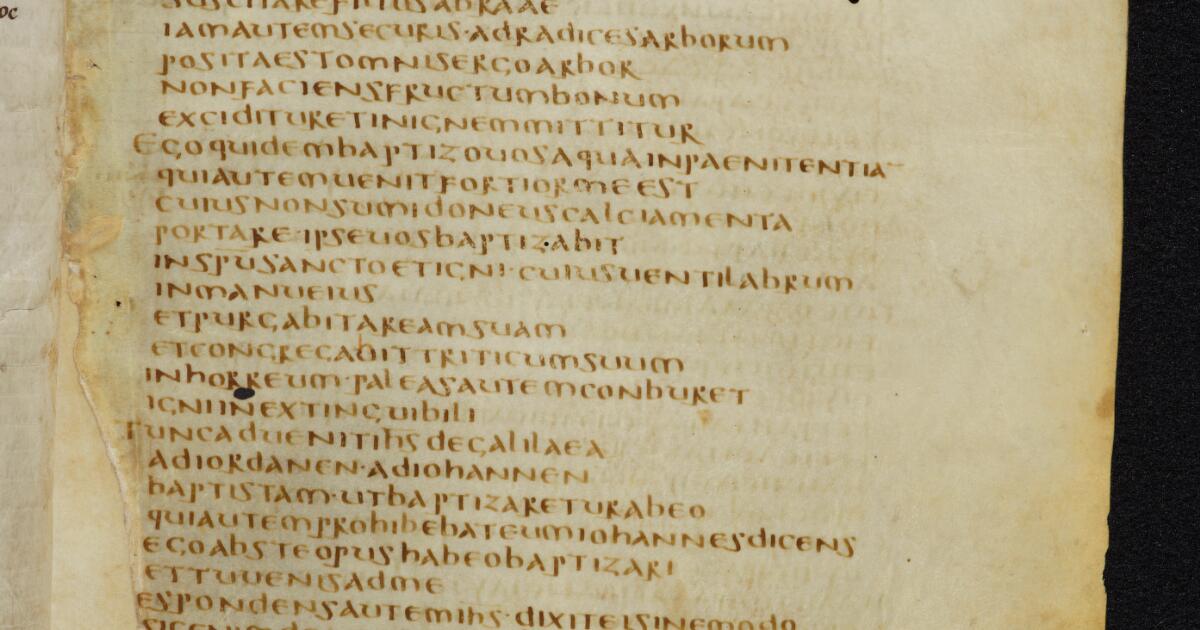 SUSCITAREFILIOSABRAAE
IAMAUTEMSECURIS·ADRADICESARBORUM
POSITAESTOMNISERGOARBOR
NONFACIENSFRUCTUMBONUM
EXCIDITURETINIGNEMMITTITUR
EGOQUIDEMBAPTIZOUOSAQUAINPAENITENTIA
QUIAUTEMUENITFORTIORMEEST
CUIUSNONSUMIDONEUSCALCIAMENTA
PORTARE·IPSEUOSBAPTIZABIT
INSPUSANCTOETIGNI·CUIUSUENTILABRUM
INMANUEIUS
ETPURGABITAREAMSUAM
ETCONGREGABITTRITICUMSUUM
INHORREUM·PALEASAUTEMCONBURET
IGNIINEXTINGUIBILI
TUNCADUENITIHSDEGALILAEA
ADIORDANEN·ADIOHANNEN
BAPTISTAM·UTBAPTIZARETURABEO
QUIAUTEMPROHIBEBATEUMIOHANNESDICENS
EGOABSTEOPUSHABEOBAPTIZARI
ETTUUENISADME
ESPONDENSAUTEMIHS·DIXITEISINEMODO